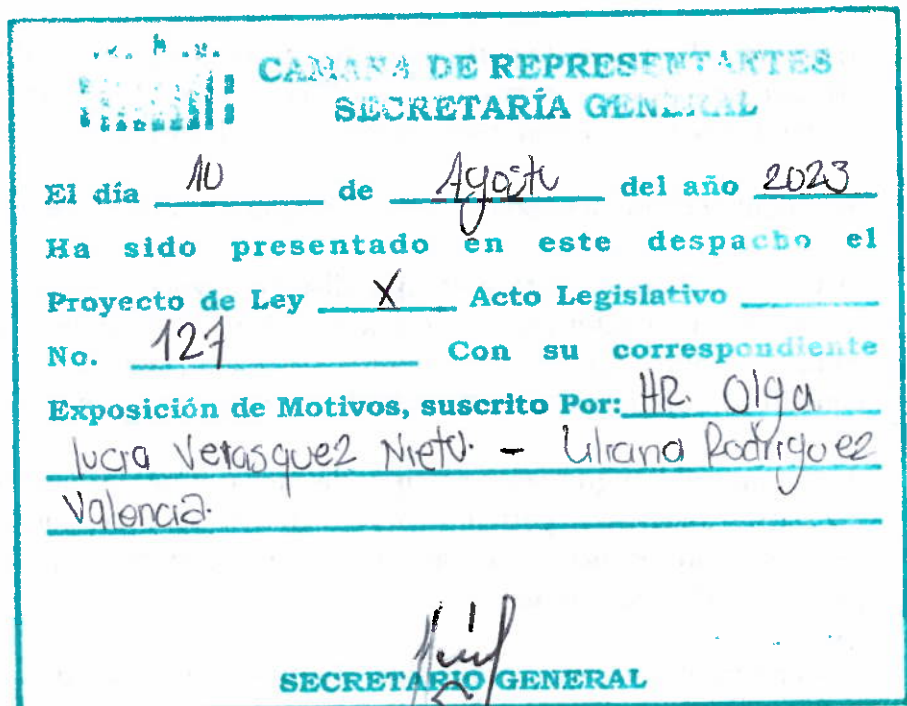 CAMARA DE REPRESENTANTES
SECRETARÍA GENERAL
El día 10 de Agosto del año 2023
Ha sido presentado en este despacho el
Proyecto de Ley X Acto Legislativo
No. 127 Con su correspondiente
Exposición de Motivos, suscrito Por: HR. Olga
lucia Velasquez Nieto. - Liliana Rodriguez
Valencia.
SECRETARIO GENERAL